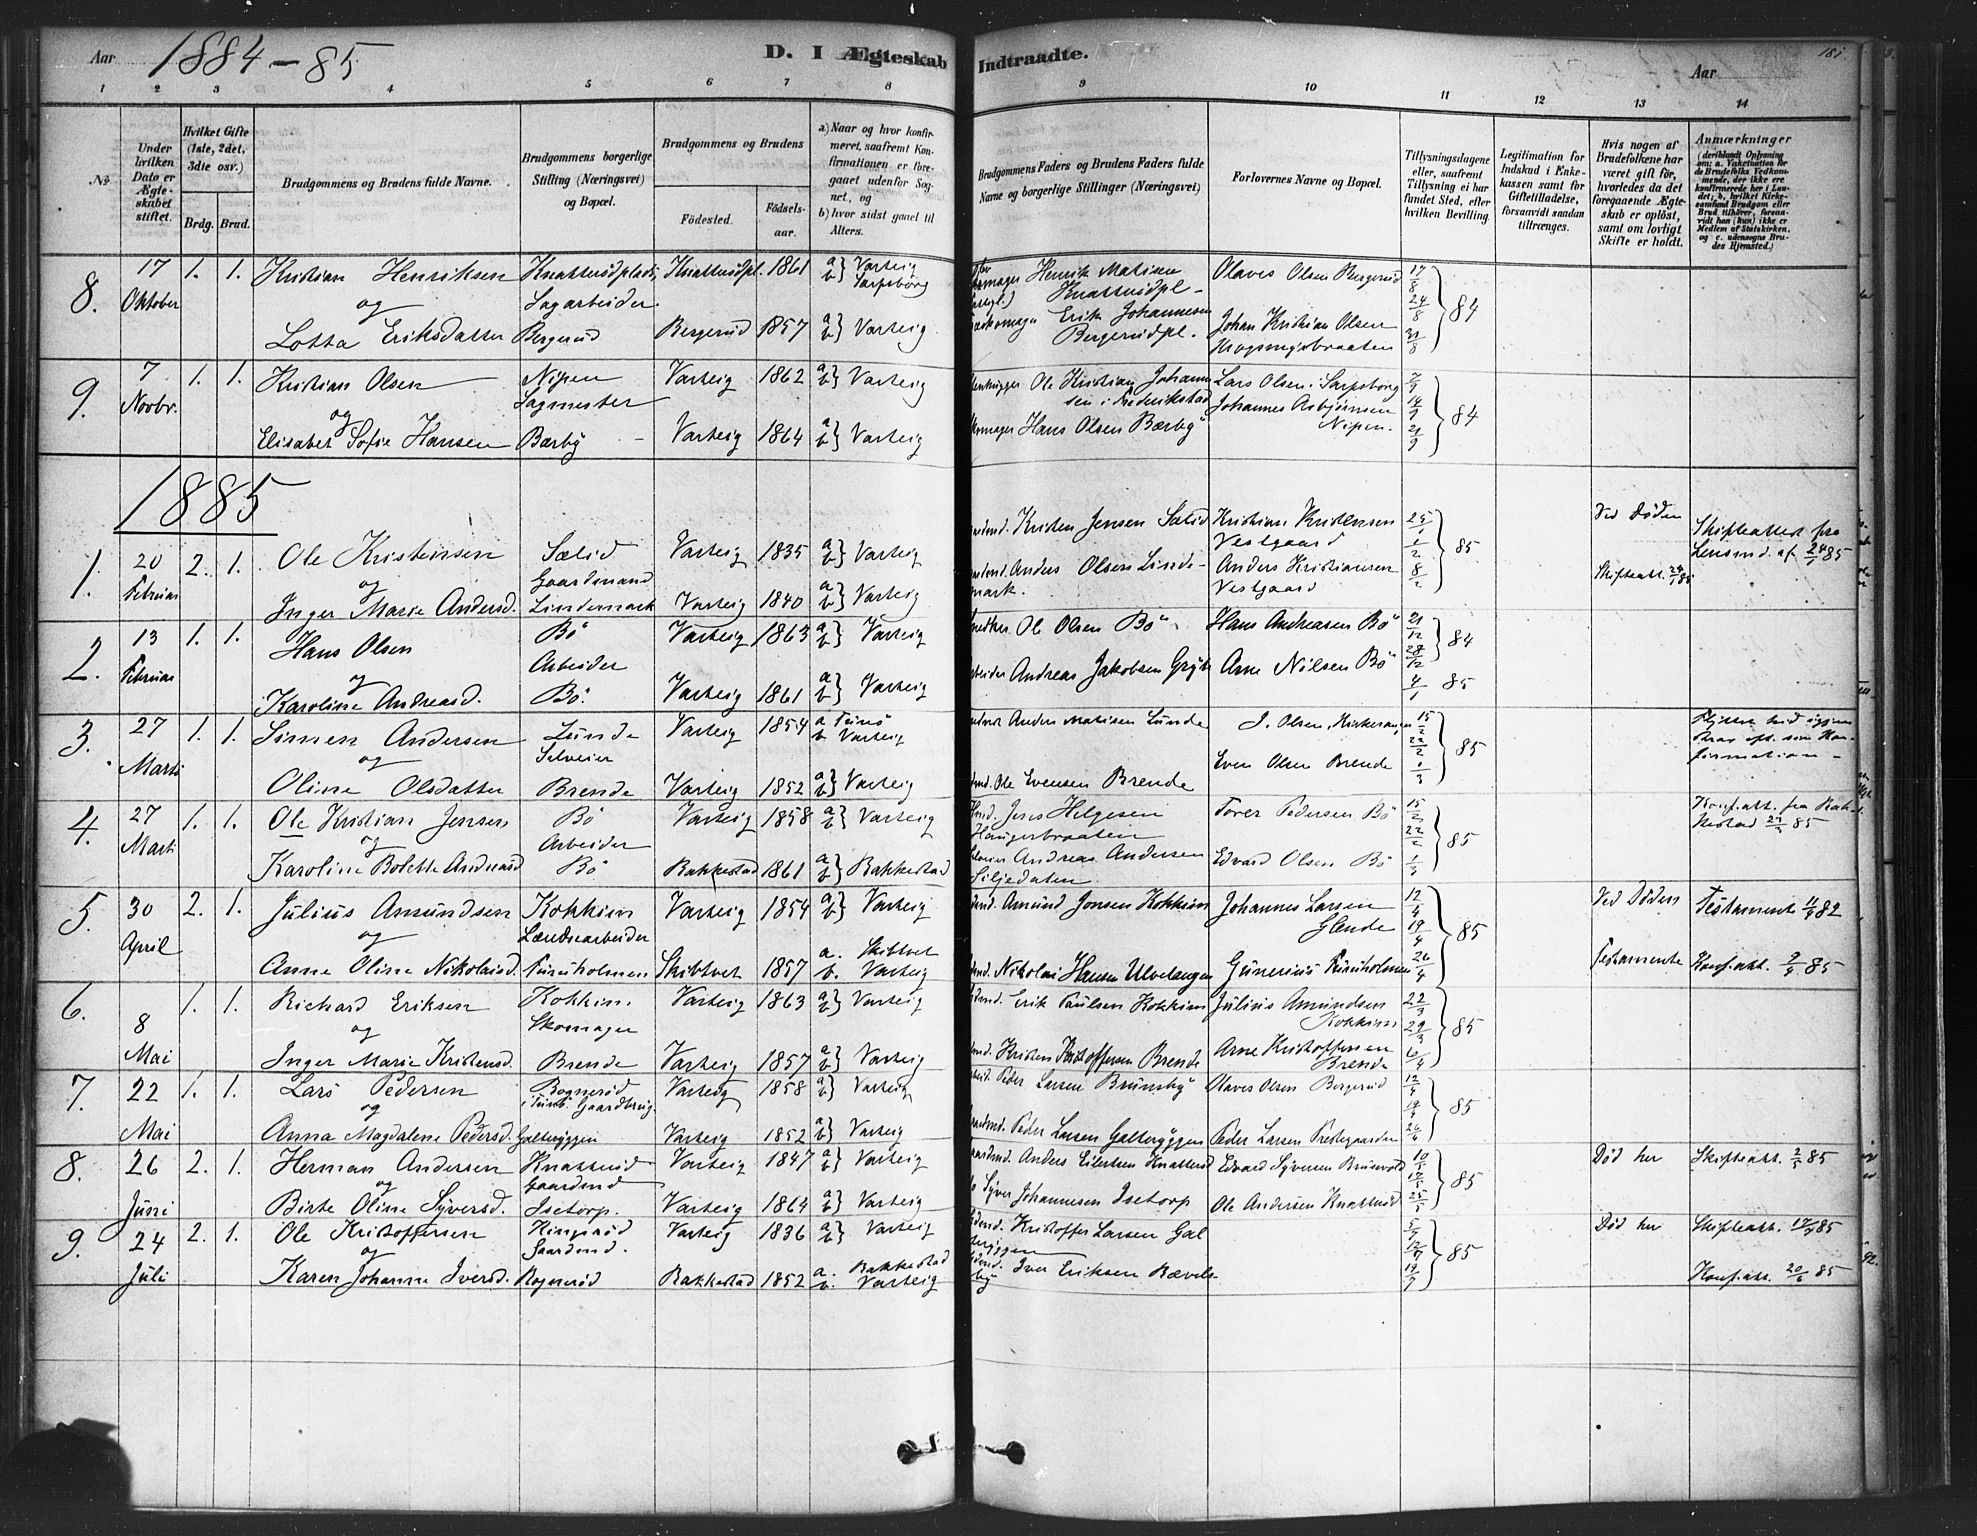 Aar 1884-85
D. I Ægteskab Indtraadte.
Aar
1 2 3 4 5 6 7 8 9 10 11 12 13 14
No
Under hvilken Dato er Ægteskabet stiftet.
Hvilket Gifte (1ste, 2det, 3die osv.)
Brdg. Brud.
Brudgommens og Brudens fulde Navne.
Brudgommens borgerlige Stilling (Næringsvei) og Bopæl.
Brudgommens og Brudens
Fødested.
Fødselsaar.
a) Naar og hvor konfirmeret, saafremt Konfirmationen er foregaaet udenfor Sognet, og
b) hvor sidst gaaet til Alters.
Brudgommens Faders og Brudens Faders fulde Navne og borgerlige Stillinger (Næringsvei)
Forlovernes Navne og Bopæl.
Tillysningsdagene eller, saafremt Tillysning ei har fundet Sted, efter hvilken Bevilling.
Legitimation for Indskud i Enkekassen samt for Giftetilladelse, forsaavidt saadan tiltrænges.
Hvis nogen af Brudefolkene har været gift før, hvorledes da det foregaaende Ægteskab er opløst, samt om lovligt Skifte er holdt.
Anmærkninger
(deriblandt Oplysning om: a. Vakcination for de Brudefolks Vedkommende, der ikke ere konfirmerede her i Landet; b. hvilket Kirkesamfund Brudgom eller Brud tilhører, forsaavidt han (hun) ikke er Medlem af Statskirken, og c. udensogns Brudes Hjemsted.)
8. 17 Oktober 1. 1. Kristian Henriksen Knatterødplads, Knatterødpl. 1861 a b} Varteig Sarpsborg Henrik Matisen Knatterødpl- Olaves Olsen Bergerud 17/8
og Sagarbeider. 24/8 } 84
Lotta Eriksdatter Bergerud Bergerud 1857 a b} Varteig. Erik Johannesen Bergerudpl. Johan Kristian Olsen 31/8
9. 7 Novbr. 1. 1. Kristian Olsen Nipen Varteig 1862 a b} Varteig Ole Kristian Johannesen i Frederikstad Lars Olsen i Sarpsborg 7/9
og Sagmester 14/9 } 84
Elisabet Sofie Hansen Bærby - Varteig 1864 a b} Varteig Hans Olsen Bærby Johannes Asbjørnsen Nipen. 21/9
1885
1. 20 Februar 2. 1. Ole Kristensen Sælid Varteig 1835 a b} Varteig Kristen Jensen Sælid Kristian Kristensen Vestgaard 25/1 Ved Døden Skifteattest fra Lensmd. af 24/1 85
og Gaardmand 1/2 } 85
Inger Marie Andersd. Lindemark Varteig 1840 a b} Varteig Anders Olsen Lindemark. Anders Kristiansen Vestgaard 8/2 Skifteatt. 24/1 85
2. 13 Februar 1. 1. Hans Olsen Bø Varteig 1863 a b} Varteig Ole Olsen Bø Hans Andreasen Bø 21/12
og Arbeider 28/12 } 84
Karoline Andreasd. Bø. Varteig 1861 a b} Varteig Andreas Jakobsen Arne Nilsen Bø 4/1 85
3. 27 Marts 1. 1. Simen Andersen Lunde Varteig 1854 a Tunø b Varteig Anders Matisen Lunde J. Olsen, 15/2
og Selveier 22/2 } 85
Oline Olsdatter Brende Varteig 1852 a b} Varteig Ole Evensen Brende Even Olsen Brende 1/3
4. 27 Marts 1. 1. Ole Kristian Jensen Bø Varteig 1858 a b} Varteig Jens Helgesen Haugerbraaten Torer Pedersen Bø 15/2 Konf.att. fra Rakkestad 85
og Arbeider 22/2 } 85
Karoline Bolette Andreasd Bø Rakkestad 1861 a b} Rakkestad Andreas Andersen Siljedalen. Edvard Olsen Bø 1/3
5. 30 April 2. 1. Julius Amundsen Kokkim Varteig 1854 a b} Varteig Amund Jonsen Kokkim Johannes Larsen Glende 12/4 Ved Døden Testamente 82
og Landsarbeider 19/4 } 85
Anne Oline Nikolaisd. Furuholmen Skibtvet 1857 a. Skibtvet b. Varteig Nikolai Hansen Gunerius Furuholmen 26/4 Testamente Konf.att. 9/4 85
6. 8 Mai 1. 1. Richard Eriksen Kokkim. Varteig 1863 a b} Varteig Erik Paulsen Kokkim Julius Amundsen Kokkim 22/3
og Skomager 29/3 } 85
Inger Marie Kristensd. Brende Varteig 1857 a b} Varteig Kristen Kristoffersen Brende Arne Kristoffersen Brende 6/4
7. 22 Mai 1. 1. Lars Pedersen Rognerød Varteig 1858 a b} Varteig Peder Larsen Brunsby Olaves Olsen Bergerud 12/4
og i Tunø. Gaardbrug. 19/4 } 85
Anna Magdalene Pedersd. Galterøggen Varteig 1852 a b} Varteig Peder Larsen Galterøggen Peder Larsen Prestegaarden 26/4
8. 26 Juni 2. 1. Herman Andersen Knatterud Varteig 1847 a b} Varteig Anders Eilertsen Knatterød Edvard Syversen 10/5 Død her Skifteatt. 2/5 85
og Gaardmd 17/5 } 85
Birte Oline Syversd. Isetorp. Varteig 1864 a b} Varteig Syver Johannesen Isetorp Ole Andersen Knatterød 25/5
9. 24 Juli 2. 1. Ole Kristoffersen Ringerød Varteig 1836 a b} Varteig Kristoffer Larsen Galterøggen 5/7 Død her Skifteatt. 85
og Gaardmd. 12/7 } 85
Karen Johanne Iversd. Rognerød Rakkestad 1852 a. Rakkestad b. Varteig Iver Eriksen 19/7 Konf.att. 20/6 85